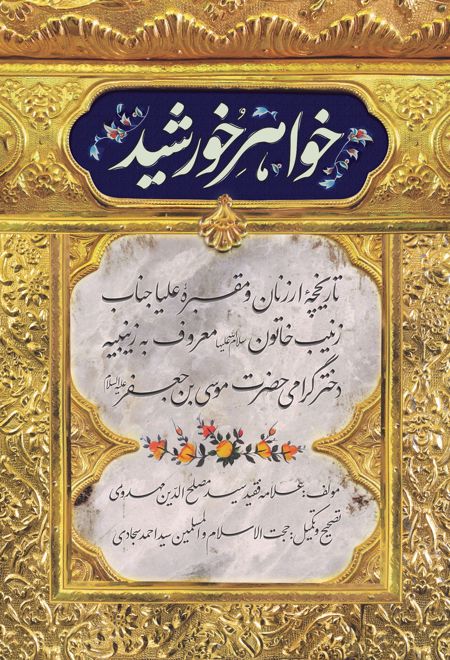 خواهرِ خورشید
تاریخچهٔ ارزنان و مقبرهٔ علیا جناب
زینب خاتون سلام الله علیها معروف به زینبیه
دختر گرامی حضرت موسی بن جعفر علیه السلام
مولف: علامه فقید سید مصلح الدین مهدوی
تصحیح و تکمیل: حجت الاسلام و المسلمین سید احمد سجادی